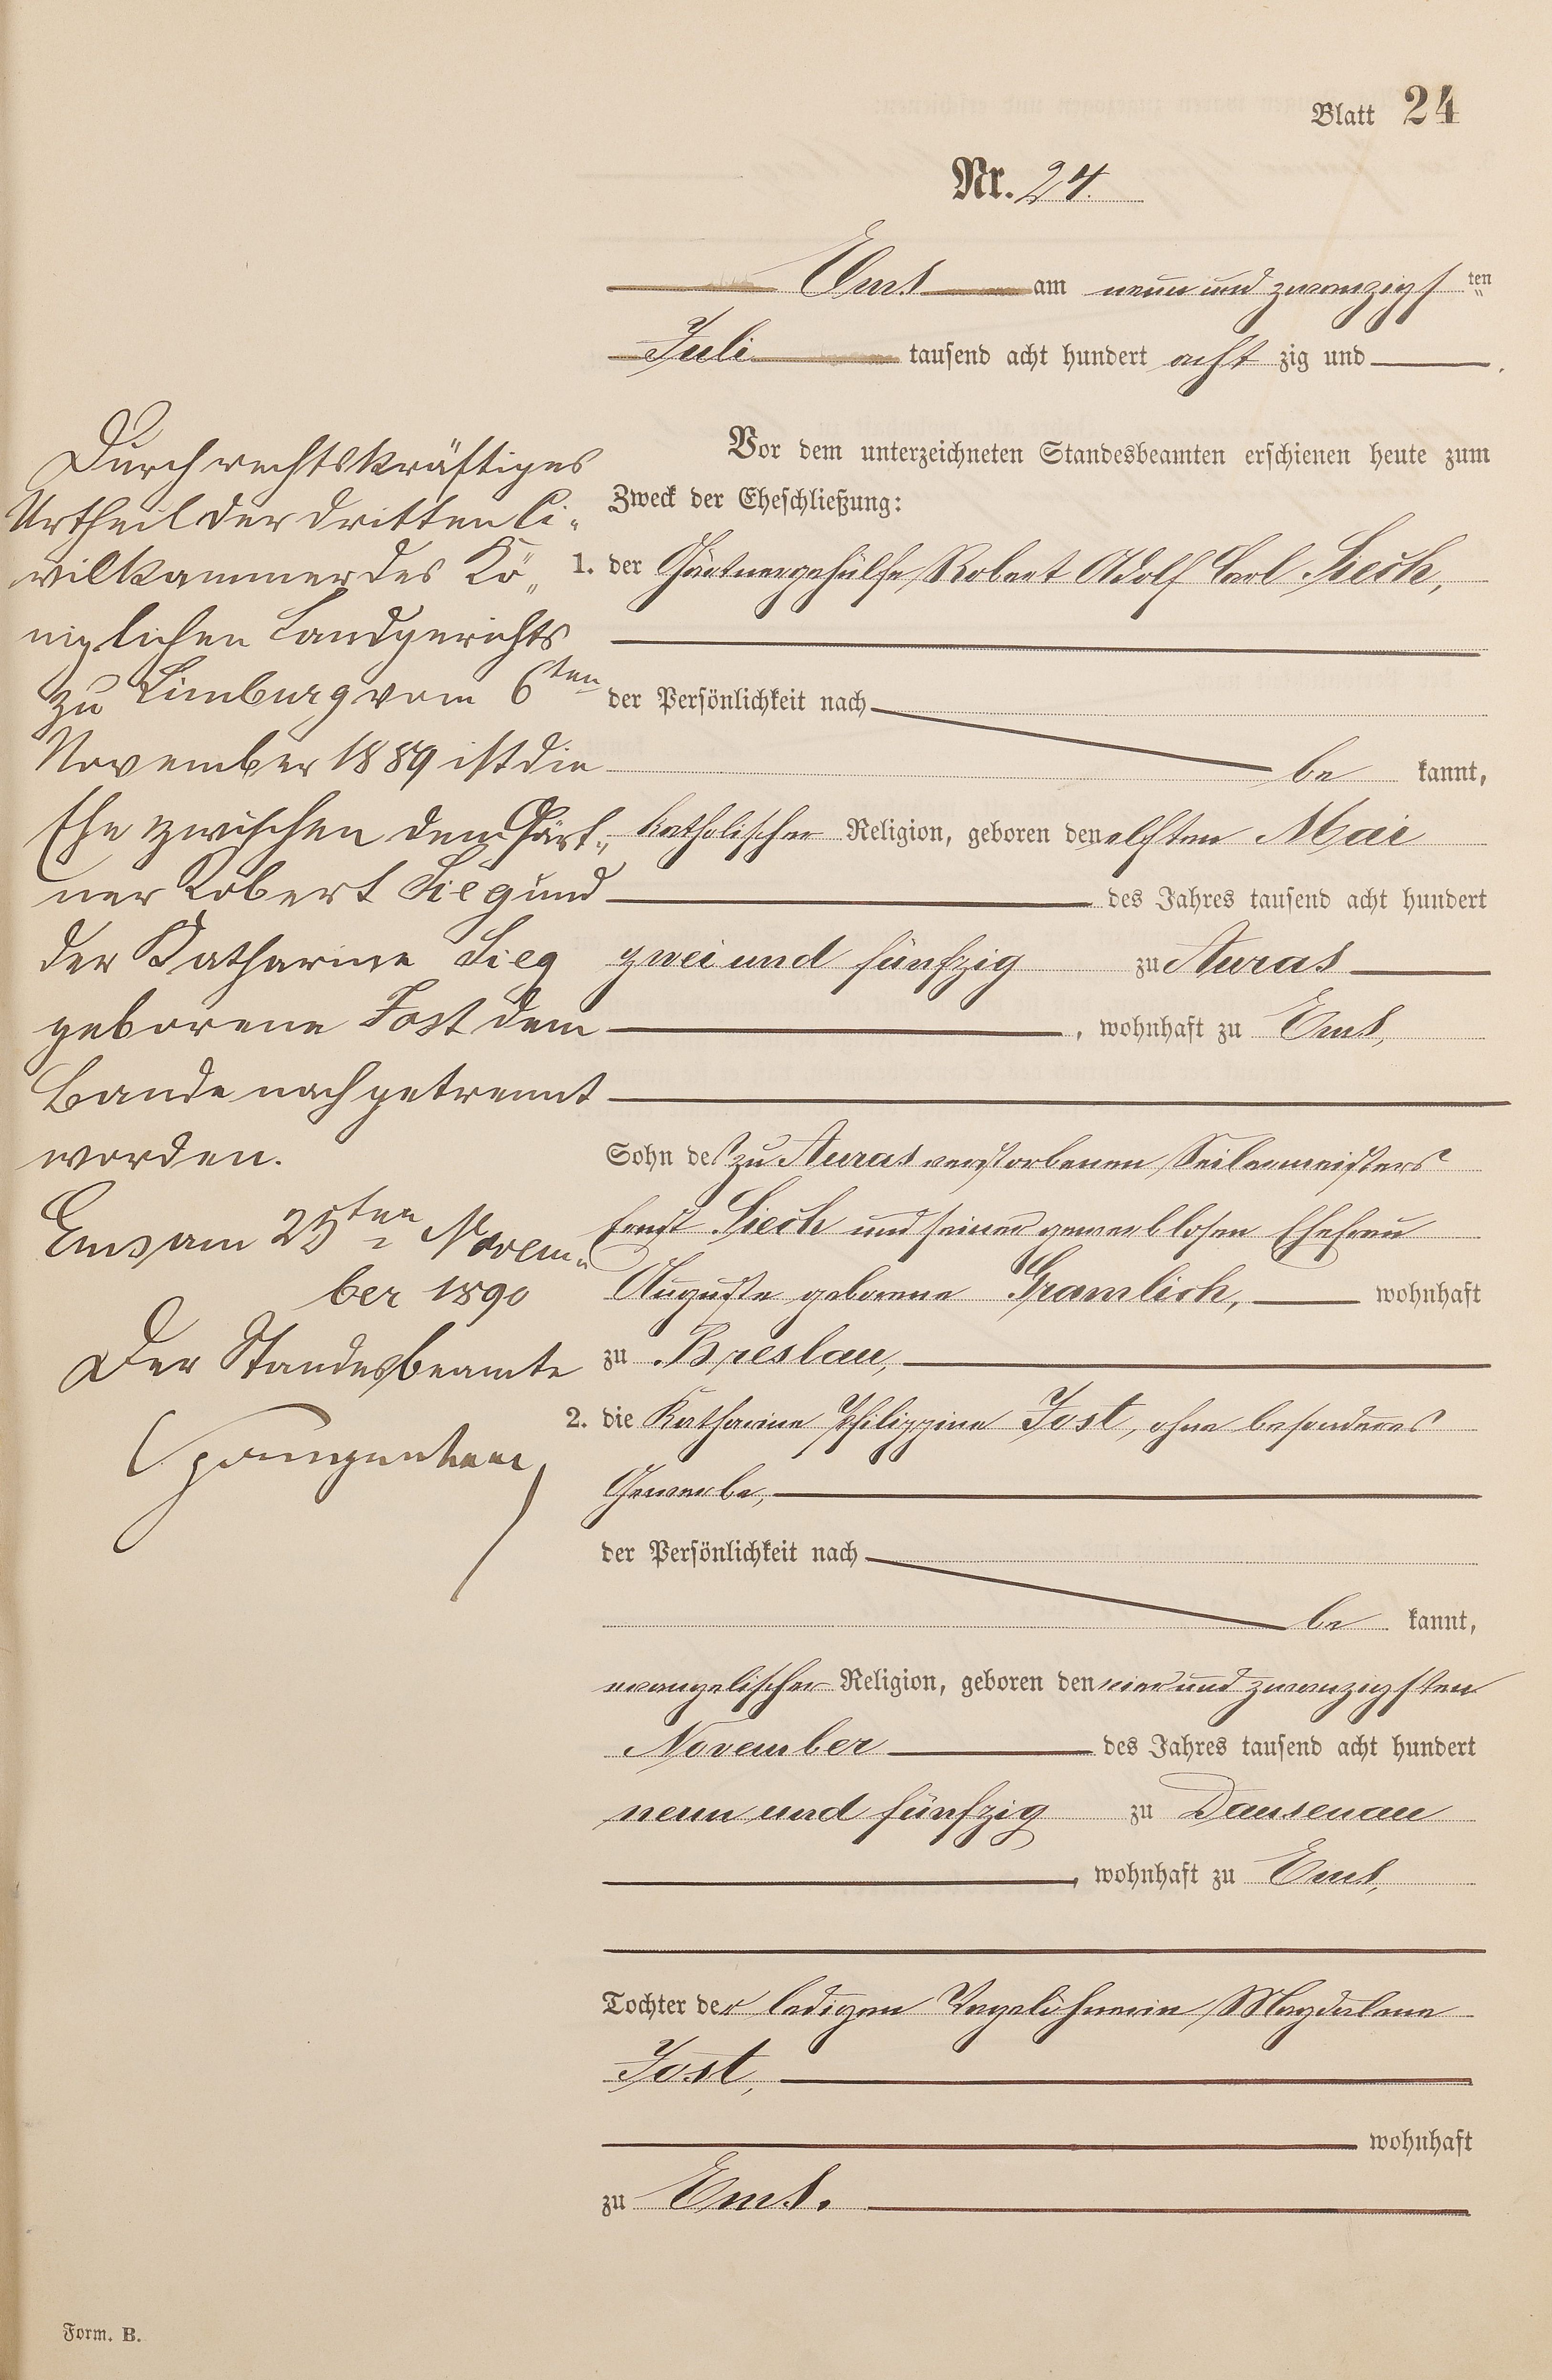 Blatt 24
Nr. 24.
Ems am neun und zwanzigsten
Juli tausend acht hundert acht zig und
Vor dem unterzeichneten Standesbeamten erschienen heute zum
Zweck der Eheschließung:
1. der Gärtnergehülfe Robert Adolf Carl Siech,
der Persönlichkeit nach
be kannt,
katholischer Religion, geboren den elften Mai
des Jahres tausend acht hundert
zwei und fünfzig zu Auras
, wohnhaft zu Ems,
Sohn des zu Auras verstorbenen Seilermeisters
Ernst Siech und seiner gewerblosen Ehefrau
Auguste geborene Gramlich, wohnhaft
zu Breslau,
2. die Katharine Philippine Jost, ohne besonderes
Gewerbe,
der Persönlichkeit nach
be kannt,
evangelischer Religion, geboren den vier und zwanzigsten
November des Jahres tausend acht hundert
neun und fünfzig zu Dausenau
, wohnhaft zu Ems,
Tochter der ledigen Tagelöhnerin Magdalena
Jost,
wohnhaft
zu Ems.
Durch rechtskräftiges
Urtheil der dritten Ci-
vilkammer des Kö-
niglichen Landgerichts
zu Limburg vom 6ten
November 1889 ist die
Ehe zwischen dem Gärt-
ner Robert Sieg und
der Katharine Sieg
geborene Jost dem
Bande nach getrennt
worden.
Ems am 25ten Novem-
ber 1890
Der Standesbeamte
Form. B.